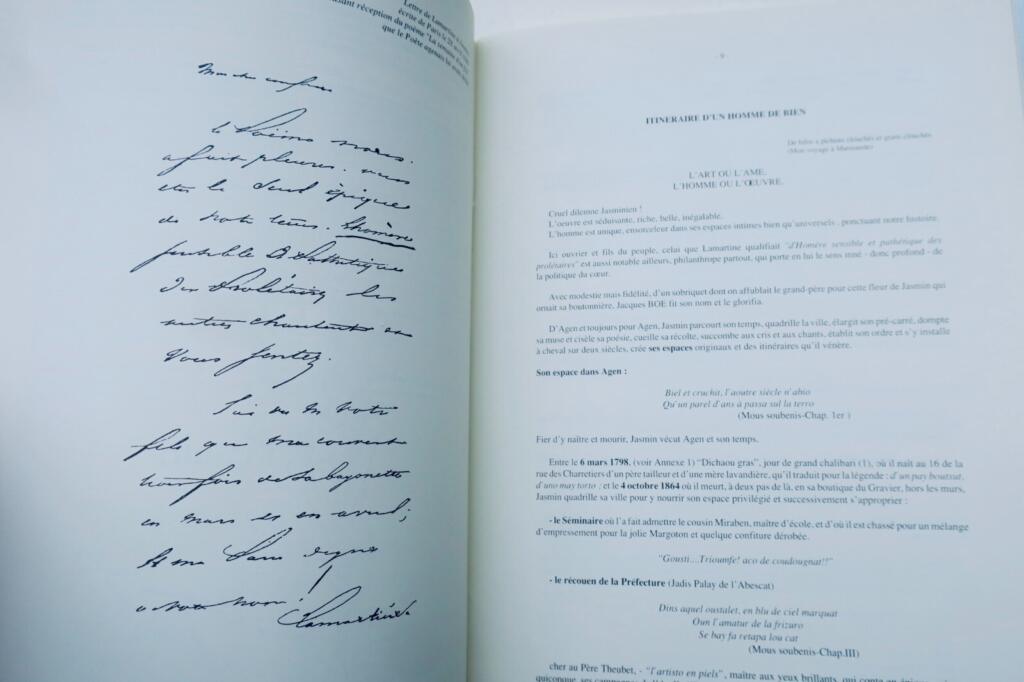 Lettre de Lamartine à
écrite de Paris le 28
réception du poème "La semaine
que le Poète agenais lui avait
Mon cher confrère
le Poème nous
a fait pleurer. vous
êtes le seul épique
de notre temps. l'homère
sensible & pathétique
des Prolétaires les
autres chantent et
vous sentez.
J'ai vu votre
fils qui m'a couvert
trois fois de sa bayonette
en mars et en avril;
Il m'a paru digne
de votre nom!
Lamartine
- 9
ITINERAIRE D'UN HOMME DE BIEN
De bilos a pichous clouchés et grans clouchés
(Mon voyage à Marmande)
L'ART OU L'AME,
L'HOMME OU L'ŒUVRE.
Cruel dilemne Jasminien !
L'oeuvre est séduisante, riche, belle, inégalable.
L'homme est unique, ensorceleur dans ses espaces intimes bien qu'universels , ponctuant notre histoire.
Ici ouvrier et fils du peuple, celui que Lamartine qualifiait "d'Homère sensible et pathétique des
prolétaires" est aussi notable ailleurs, philanthrope partout, qui porte en lui le sens inné - donc profond - de
la politique du cœur.
Avec modestie mais fidélité, d'un sobriquet dont on affublait le grand-père pour cette fleur de Jasmin qui
ornait sa boutonnière, Jacques BOE fit son nom et le glorifia.
D'Agen et toujours pour Agen, Jasmin parcourt son temps, quadrille la ville, élargit son pré-carré, dompte
sa muse et cisèle sa poésie, cueille sa récolte, succombe aux cris et aux chants, établit son ordre et s'y installe
à cheval sur deux siècles, crée ses espaces originaux et des itinéraires qu'il vénère.
Son espace dans Agen :
Biel et cruchit, l'aoutre siècle n'abio
Qu'un parel d'ans à passa sul la terro
(Mous soubenis-Chap. 1er )
Fier d'y naître et mourir, Jasmin vécut Agen et son temps.
Entre le 6 mars 1798, (voir Annexe 1) "Dichaou gras", jour de grand chalibari (1), où il naît au 16 de la
rue des Charretiers d'un père tailleur et d'une mère lavandière, qu'il traduit pour la légende : d'un pay boutsut,
d'uno may torto ; et le 4 octobre 1864 où il meurt, à deux pas de là, en sa boutique du Gravier, hors les murs,
Jasmin quadrille sa ville pour y nourrir son espace privilégié et successivement s'approprier :
- le Séminaire où l'a fait admettre le cousin Miraben, maître d'école, et d'où il est chassé pour un mélange
d'empressement pour la jolie Margoton et quelque confiture dérobée.
"Gousti....Trioumfe! aco de coudougnat!!"
- le récouen de la Préfecture (Jadis Palay de l'Abescat)
Dins aquel oustalet, en blu de ciel marquat
Oun l'amatur de la frizuro
Se bay fa retapa lou cat
(Mous soubenis-Chap.III)
cher au Père Theubet, - "l'artisto en piels", maître aux yeux brillants, qui conte en
quiconque ses campagnes